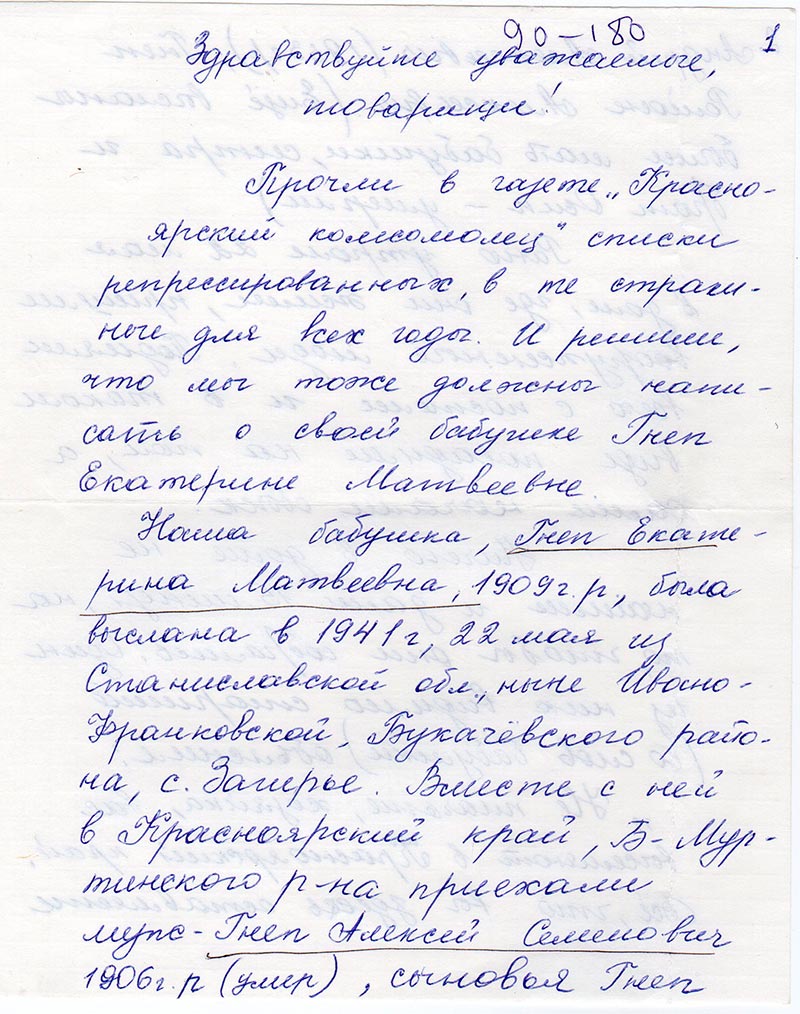 90-180
1
Здравствуйте уважаемые,
товарищи!
Прочли в газете „Красно-
ярский комсомолец" списки
репрессированных, в те страш-
ные для всех годы. И решили,
что мы тоже должны напи-
сать о своей бабушке Гнеп
Екатерине Матвеевне.
Наша бабушка, Гнеп Екате-
рина Матвеевна, 1909г.р., была
выслана в 1941г, 22 мая из
Станиславской обл., ныне Ивано-
Франковской, Букачёвского райо-
на, с. Загерье. Вместе с ней
в Красноярский край, Б-Мур-
тинского р-на приехали
муж-Гнеп Алексей Семенович
1906г.р (умер), сыновья Гнеп